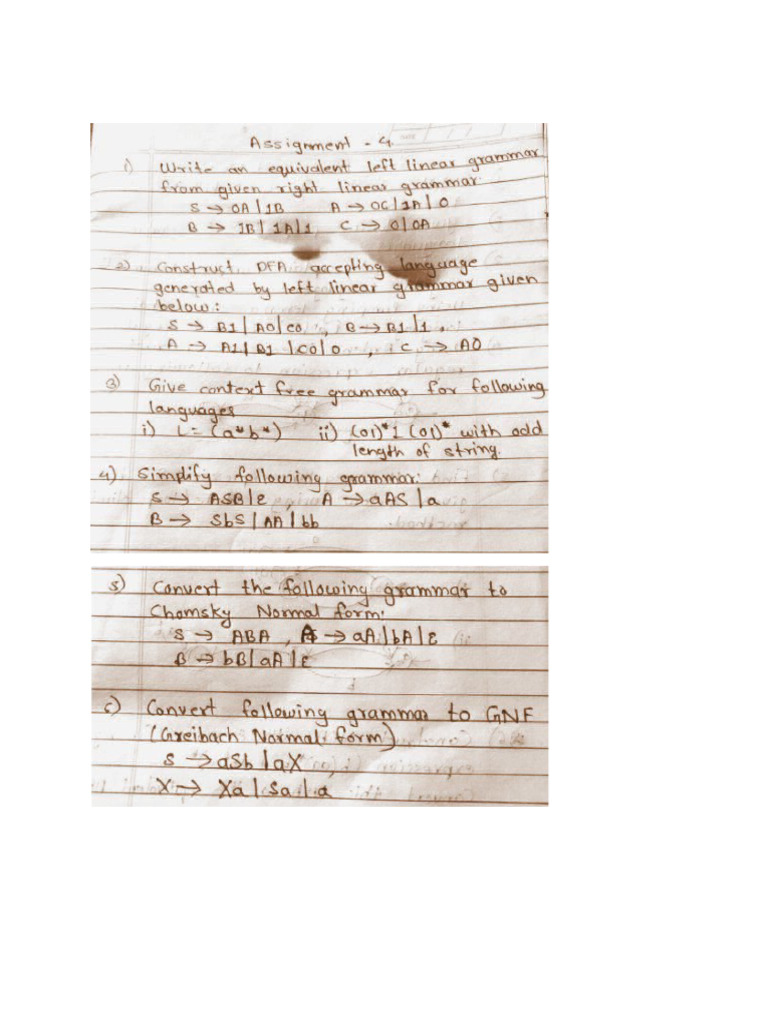 Assignment - 4
1) Write an equivalent left linear grammar
from given right linear grammar.
S → 0A | 1B A → 0C | 1A | 0
B → 1B | 1A | 1 C → 0 | 0A
2) Construct DFA accepting language
generated by left linear grammar given
below:
S → B1 | A0 | C0 , B → B1 | 1 ,
A → A1 | B1 | C0 | 0 , C → A0
3) Give context free grammar for following
languages
i) L = (a*b*) ii) (01)*1 (01)* with odd
length of string.
4) Simplify following grammar:
S → ASB | ε , A → aAS | a
B → SbS | AA | bb
5) Convert the following grammar to
Chomsky Normal form:
S → ABA , A → aA | bA | ε
B → bB | aA | ε
6) Convert following grammar to GNF
(Greibach Normal form)
S → aSb | aX ,
X → Xa | Sa | a